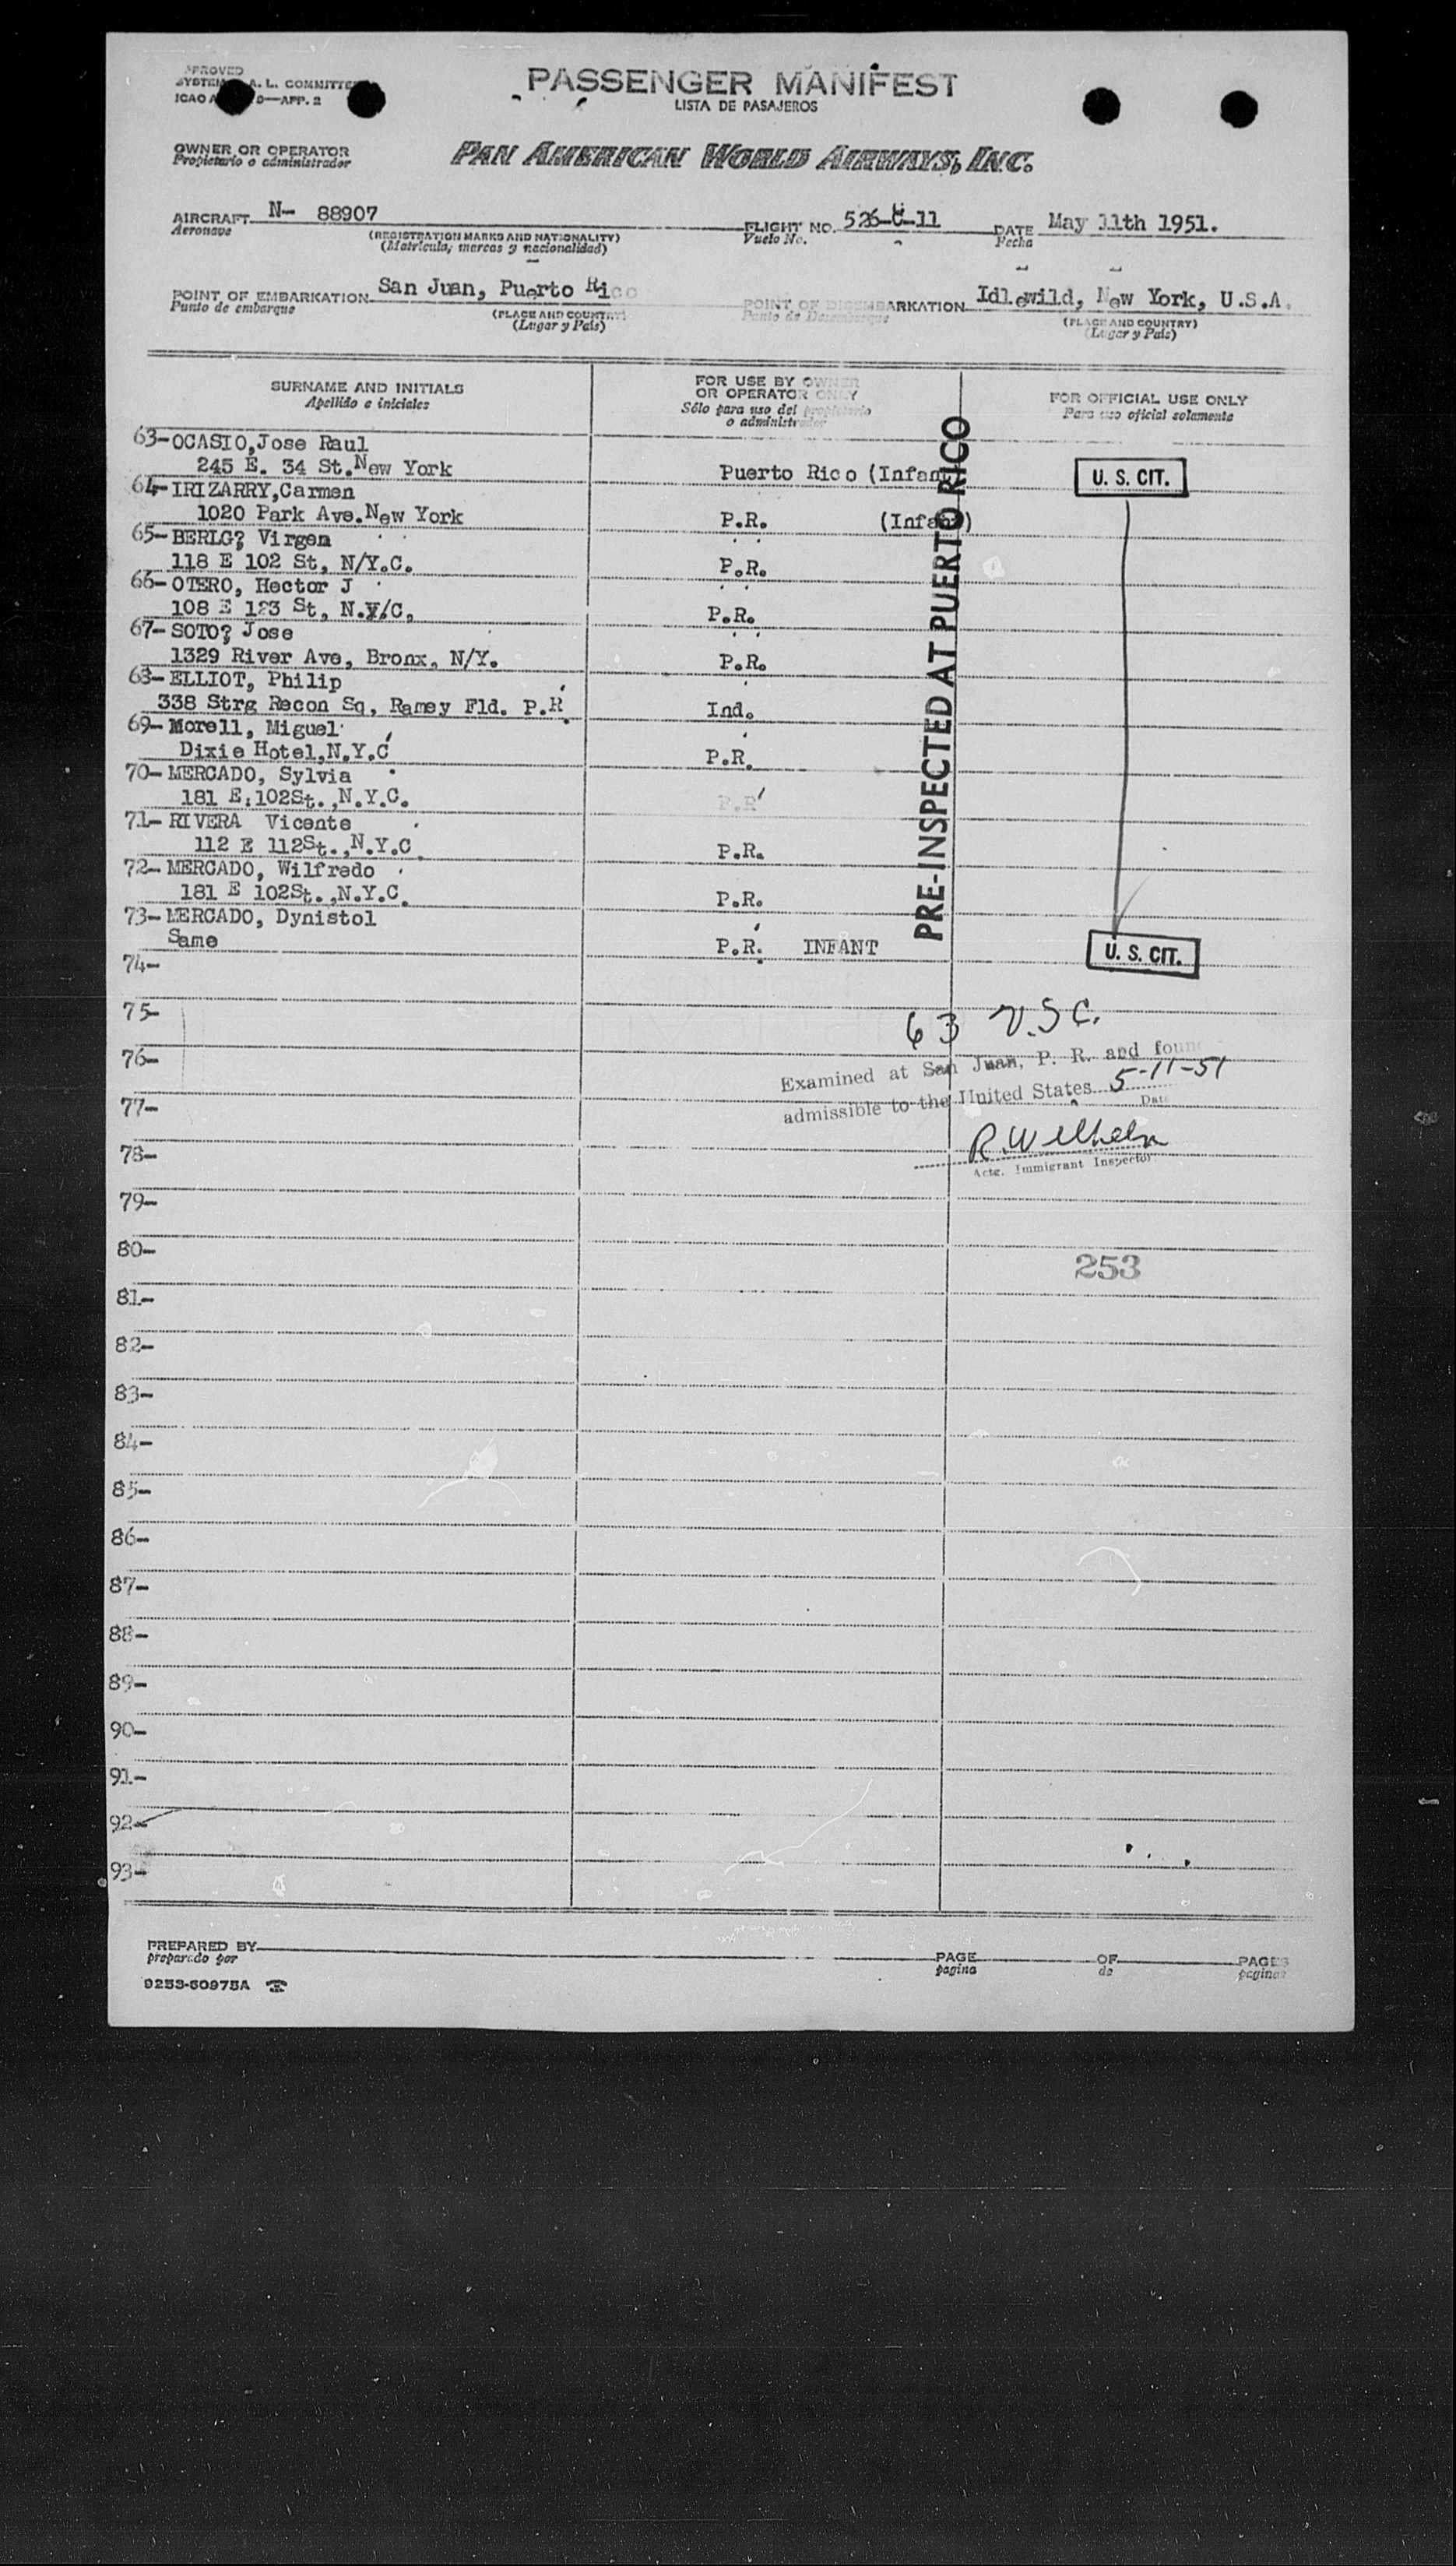 APPROVED
SYSTEM A. L. COMMITTEE
ICAO APP. 2
PASSENGER MANIFEST
LISTA DE PASAJEROS
OWNER OR OPERATOR
Propietario o administrador
PAN AMERICAN WORLD AIRWAYS, INC.
AIRCRAFT N- 88907
Aeronave
(REGISTRATION MARKS AND NATIONALITY)
(Matrícula, marcas y nacionalidad)
FLIGHT NO. 526-C-11
Vuelo No.
DATE May 11th 1951.
Fecha
POINT OF EMBARKATION San Juan, Puerto Rico
Punto de embarque
(PLACE AND COUNTRY)
(Lugar y País)
POINT OF DISEMBARKATION Idlewild, New York, U.S.A.
Punto de Desembarque
(PLACE AND COUNTRY)
(Lugar y País)
SURNAME AND INITIALS
Apellido e iniciales
FOR USE BY OWNER
OR OPERATOR ONLY
Sólo para uso del propietario
o administrador
FOR OFFICIAL USE ONLY
Para uso oficial solamente
63-OCASIO,Jose Raul
245 E. 34 St.New York Puerto Rico (Infant) U. S. CIT.
64-IRIZARRY,Carmen
1020 Park Ave.New York P.R. (Infant)
65-BERLG? Virgen
118 E 102 St, N/Y.C. P.R.
66-OTERO, Hector J
108 E 123 St, N.Y/C, P.R.
67-SOTO? Jose
1329 River Ave, Bronx, N/Y. P.R.
68-ELLIOT, Philip
338 Strg Recon Sq, Ramey Fld. P.R. Ind.
69-Morell, Miguel
Dixie Hotel,N.Y.C P.R.
70-MERCADO, Sylvia
181 E:102St.,N.Y.C. P.R
71-RIVERA Vicente
112 E 112St.,N.Y.C. P.R.
72-MERCADO, Wilfredo
181 E 102St.,N.Y.C. P.R.
73-MERCADO, Dynistol
Same P.R. INFANT U. S. CIT.
PRE-INSPECTED AT PUERTO RICO
74-
75-
63 U.S.C.
76-
Examined at San Juan, P. R. and found
admissible to the United States 5-11-51
Date
77-
R. Wilhelm
Actg. Immigrant Inspector
78-
79-
80-
253
81-
82-
83-
84-
85-
86-
87-
88-
89-
90-
91-
92-
93-
PREPARED BY
preparado por
PAGE OF PAGES
pagina de paginas
9253-60975A